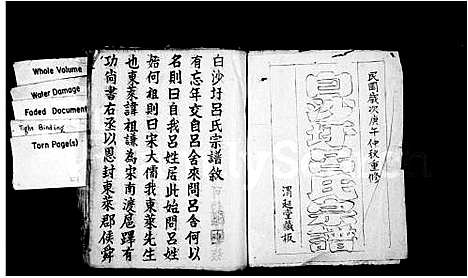 Whole Volume
Water Damage
Faded Document
Tight Binding
Torn Page(s)
民國歲次庚午仲秋重修
白沙圩呂氏宗譜
渭起堂藏板
白沙圩呂氏宗譜敘
有忘年交自呂舍來問呂舍何以
名則曰自我呂姓居此始問呂姓
始何祖則曰宋大儒我東萊先生
也東萊諱祖謙為宋南渡扈蹕有
功尚書右丞以恩封東萊郡侯舜